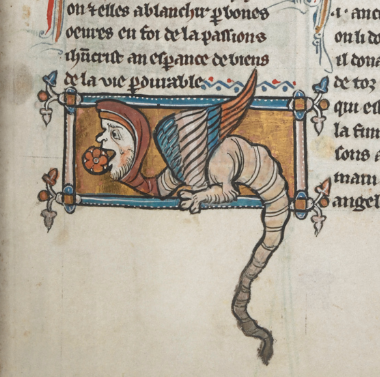 on ⁊ elles ablanchir ꝑ bones
oeures en foi de la passions
ihũcrist an esꝑance de biens
de la vie ꝑdurable
qui est
la fun
sons a
mani
angel